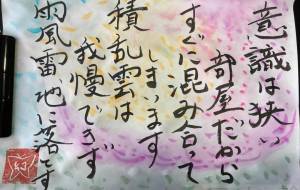 意識は狭い
部屋だから
すぐに混み合って
しまいます
積乱雲は
我慢できず
雨風雷地に落とす